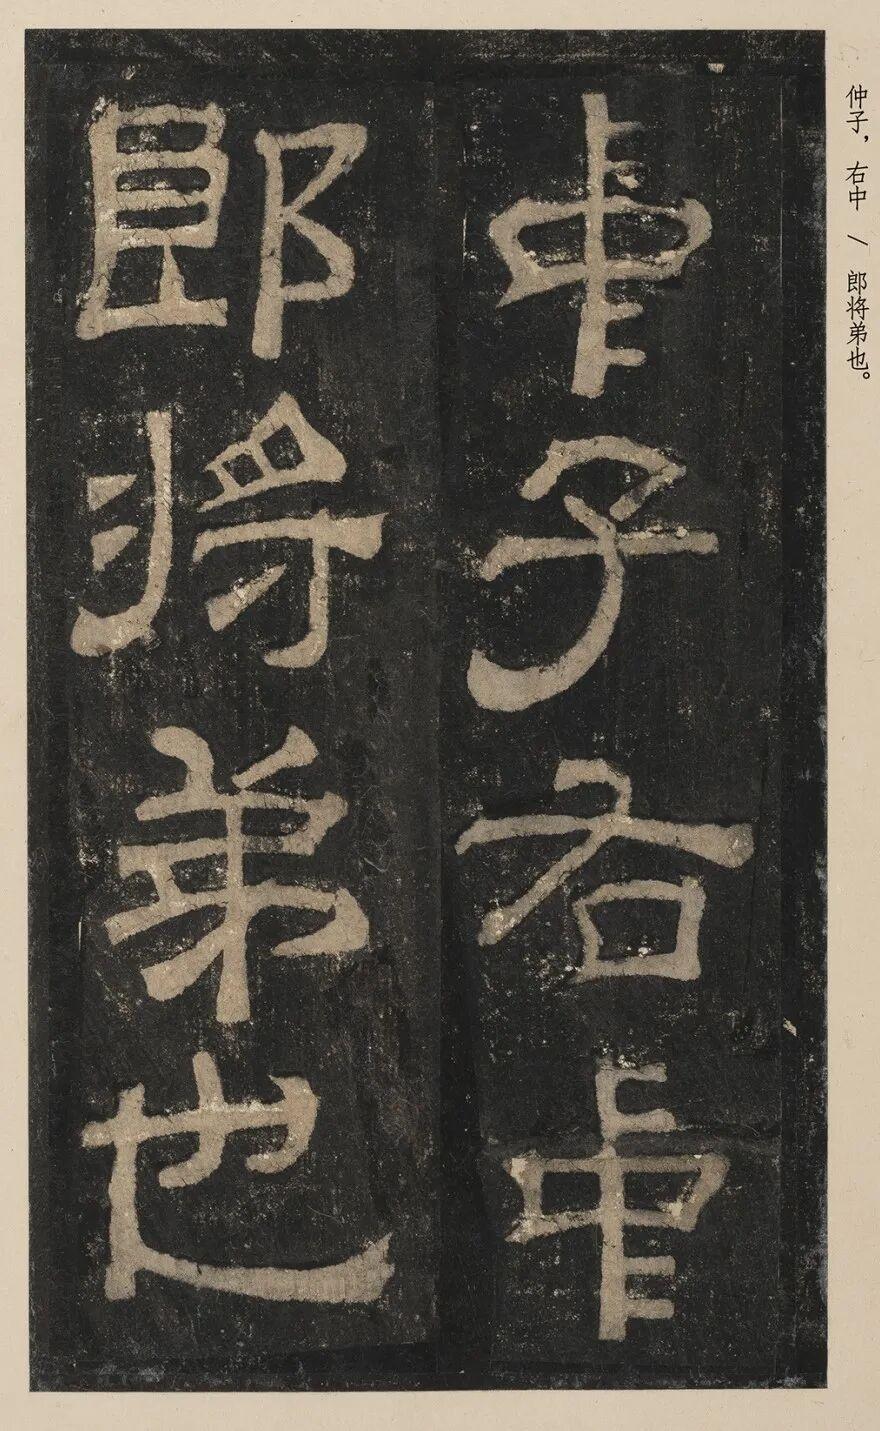 仲子，右中 / 郎将弟也。
中子右中
郎将弟也